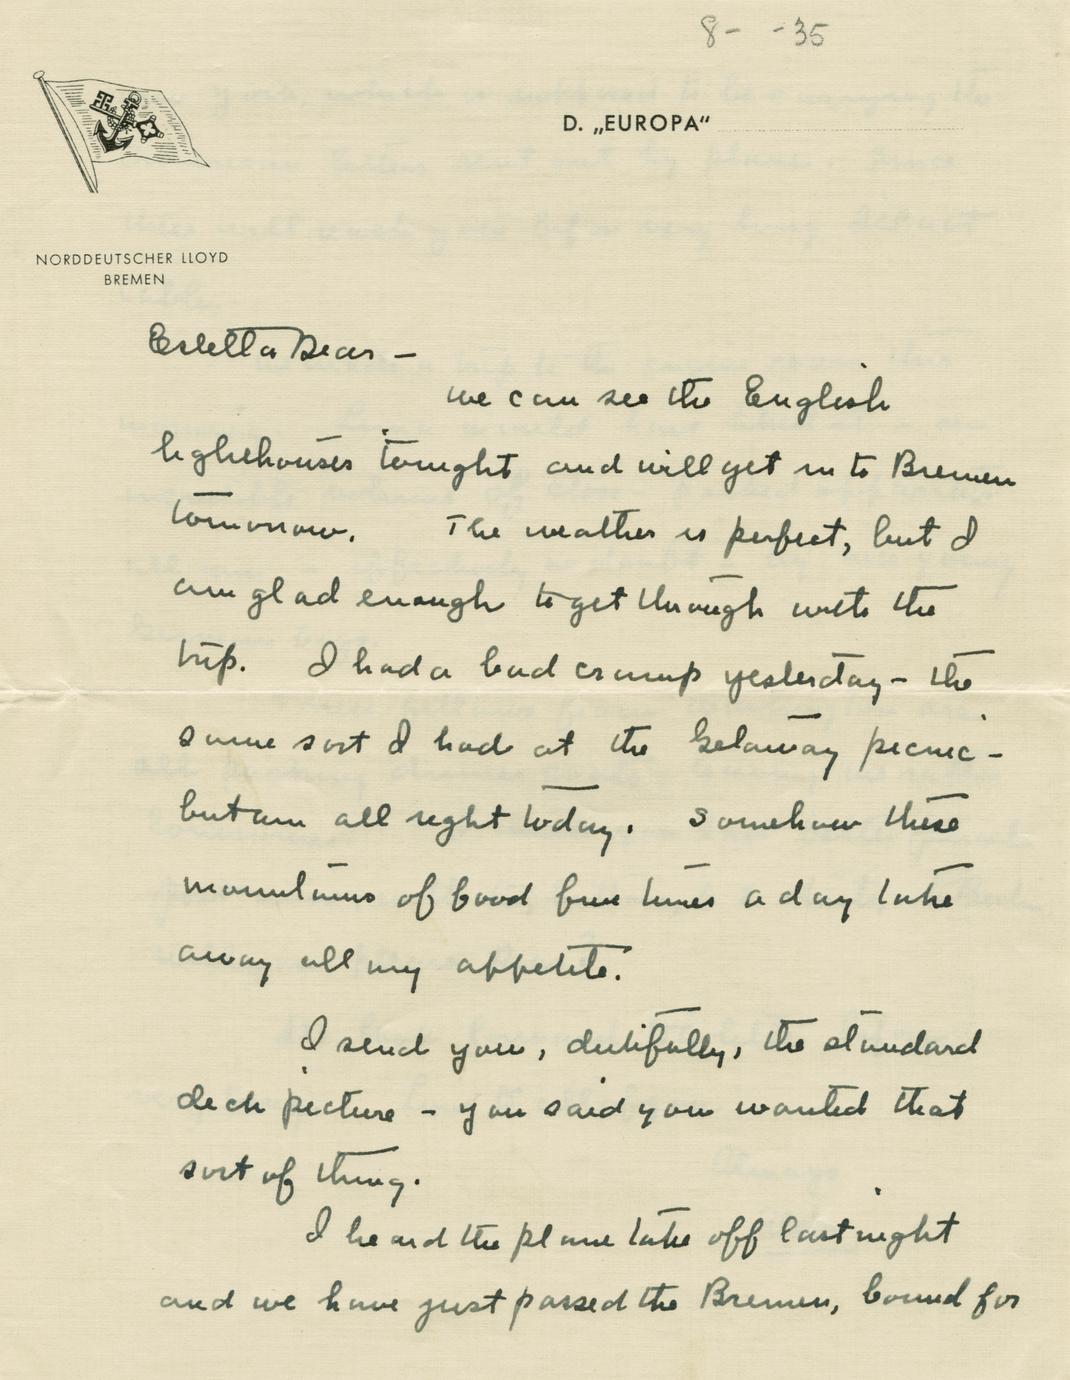 8- -35
D. „EUROPA“
NORDDEUTSCHER LLOYD
BREMEN
Esletta Dear –
we can see the English
lighthouses tonight and will get in to Bremen
tomorrow. The weather is perfect, but I
am glad enough to get through with the
trip. I had a bad cramp yesterday – the
same sort I had at the Getaway picnic –
but am all right today. Somehow these
mountains of food five times a day take
away all my appetite.
I send you, dutifully, the standard
deck picture – you said you wanted that
sort of thing.
I heard the plane take off last night
and we have just passed the Bremen, bound for